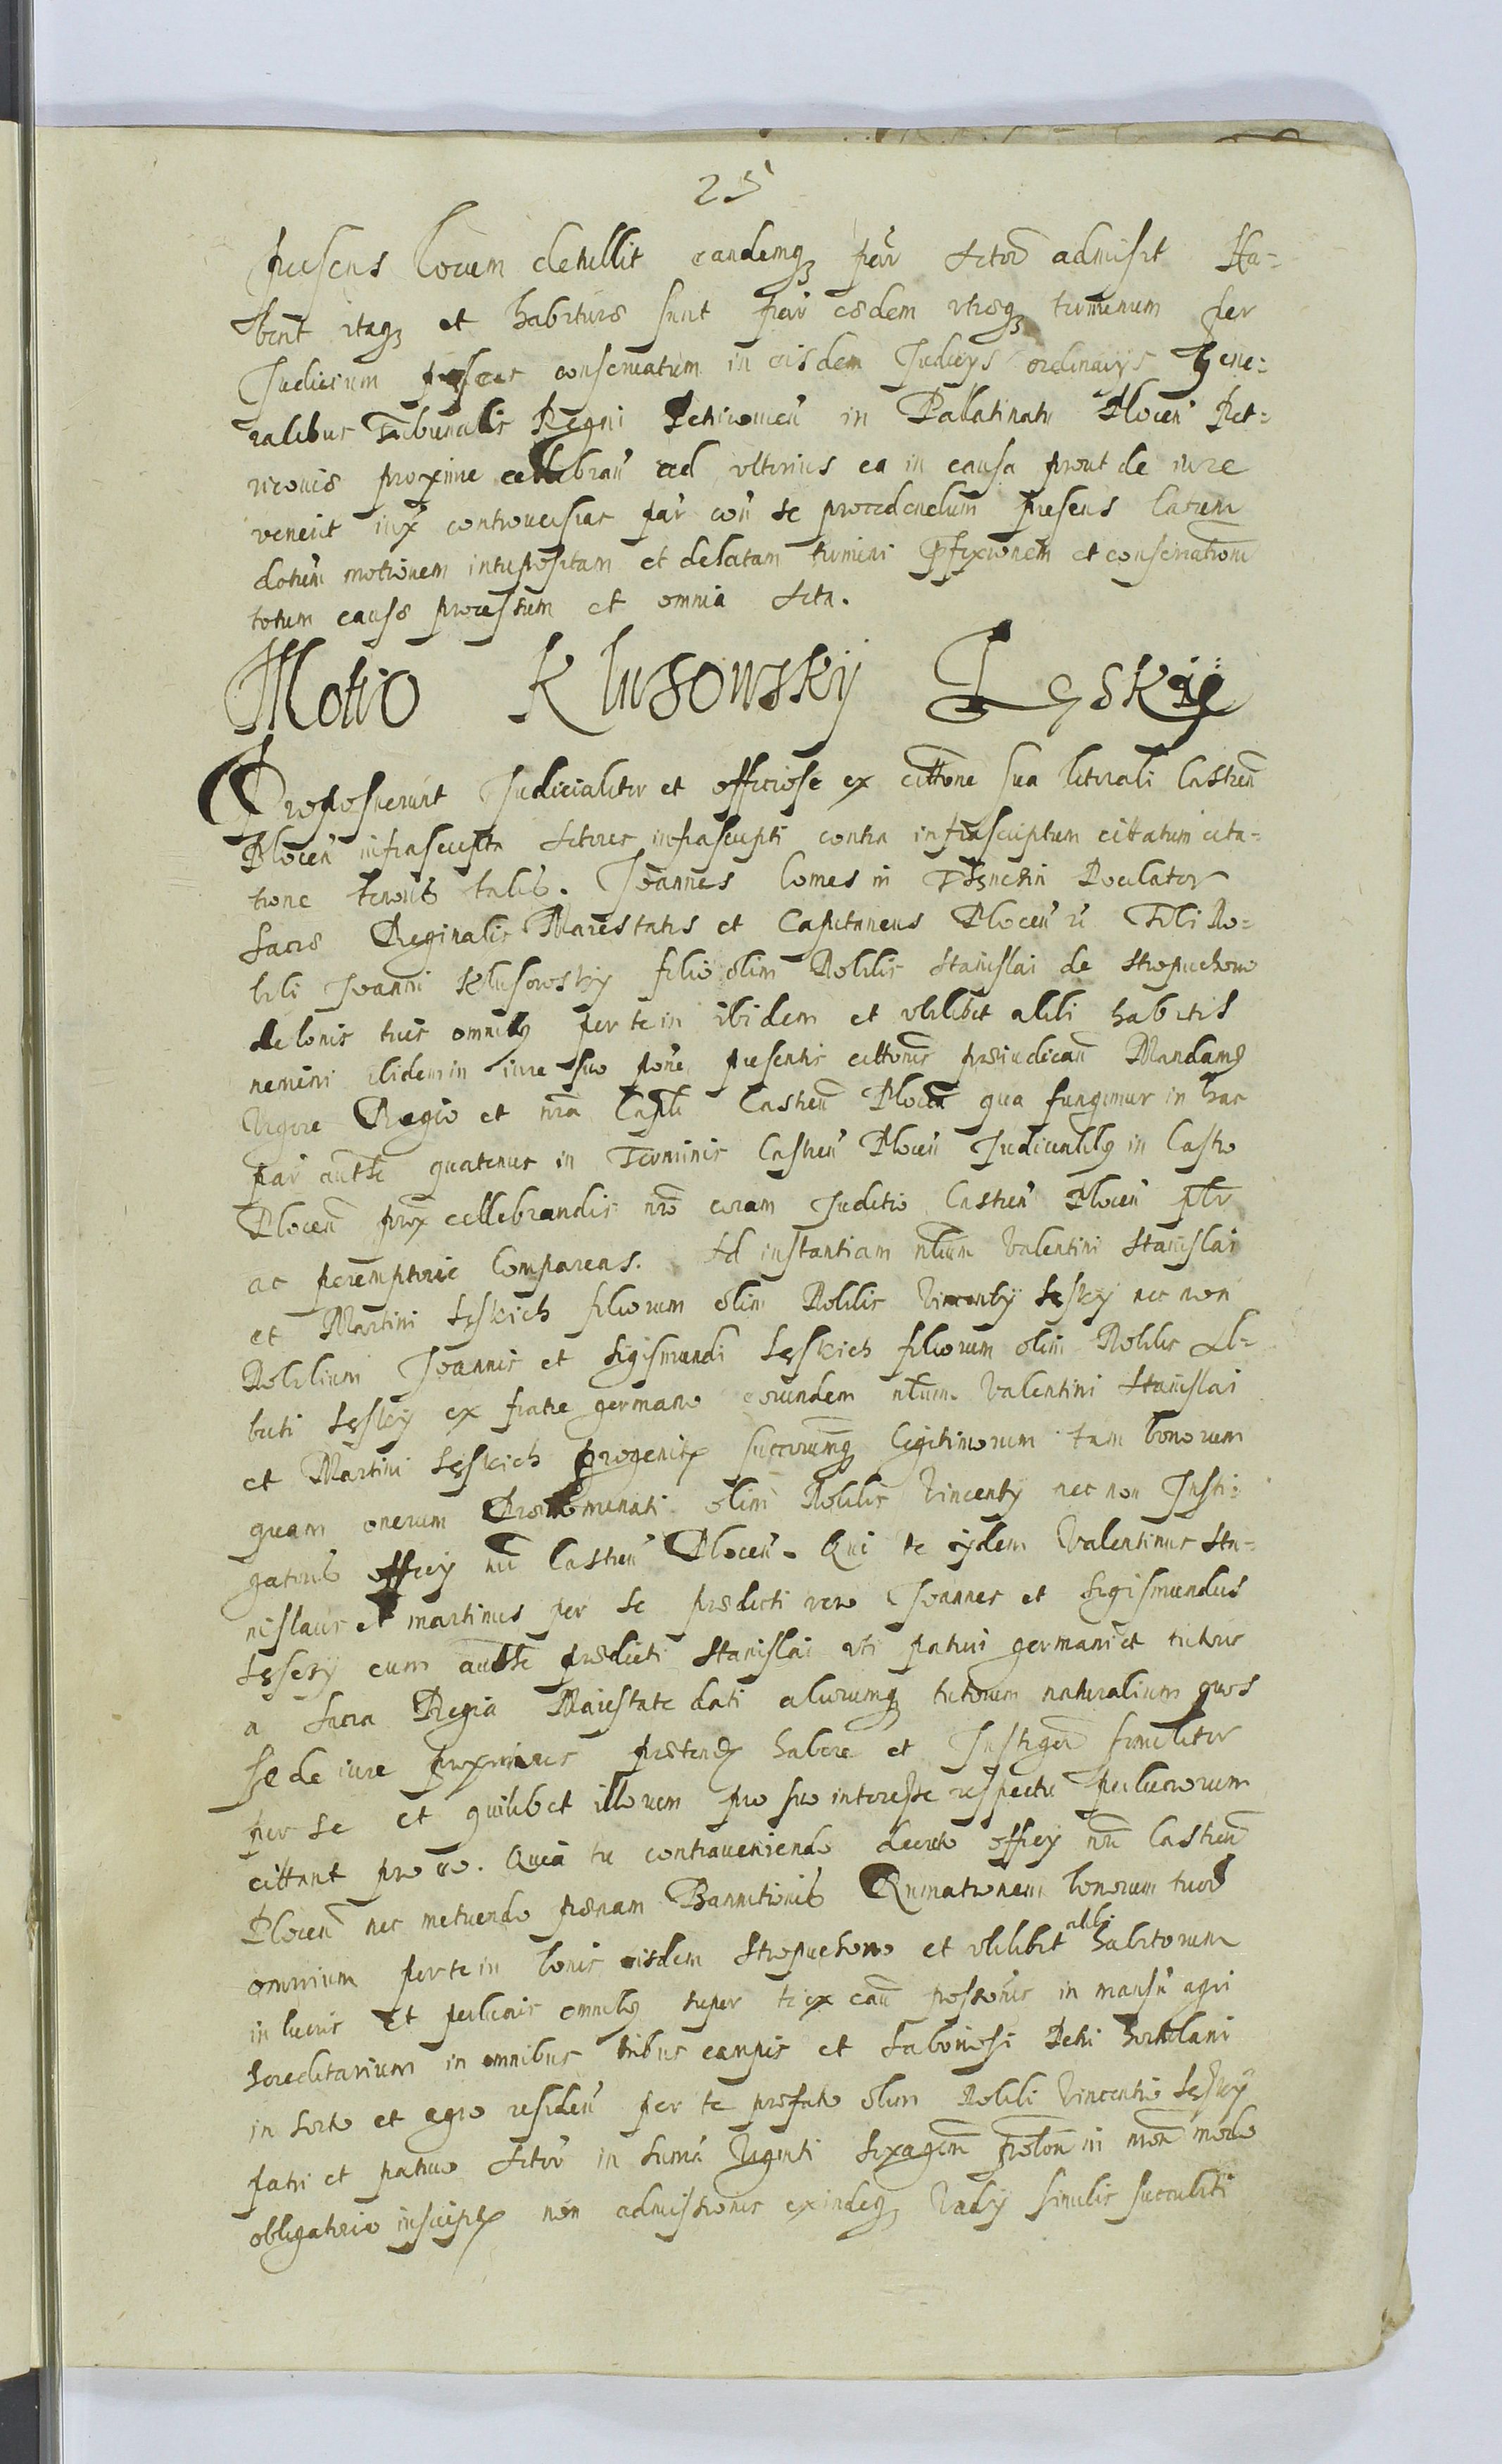 25
presens locum detullit eandemq par Actor admisit Ha-
bent itaq et habituræ sunt par eædem utræq terminum per
Judicium presens conservatum in eisdem Judicijs ordinarijs Gene-
ralibus Tribunalis Regni Petricovien in Palatinatu Plocen Pet-
ricoviæ proxime cellebran ad ulterius ea in causa prout de iure
venerit iux controversias par con se procedendum presens latum
motionem interpositam et delatam termini Pfixionem et conservationem
totum causæ processum et omnia Acta.
Motio Klusowskÿ Lęskÿ
Proposuerunt Judicialiter et officiose ex cittone sua literali Castren
Plocen infrascripta Actores infrascripti contra infrascriptum cittatum cita-
tione tenoris talis. Joannes Comes in Tęnczin Poculator
Sacræ Reginalis Maiestatis et Capitaneus Plocen Tibi No-
bili Joanni Klusowsky filio olim Nobilis Stanislai de Stropuchowo
de bonis tuis omnibq per te in ibidem et ubilibet alibi habitis
nemini ibidem in iure suo pone presentis cittonis præiudican Mandamq
Vigore Regio et nra Capli Castren Plocen qua fungimur in hac
par autte quatenus in Terminis Castren Plocen Judicialibq in Castro
Plocen prox cellebrandis nro coram Juditio Castren Plocen plr
ac peremptorie Compareas. Ad instantiam nblium Valentini Stanislai
et Martini Lęskich filiorum olim Nobilis Vincenty Lęsky nec non
Nobilium Joannis et Sigismundi Lęskich filiorum olim Nobilis Al-
berti Lęsky ex fratre germano eorundem nblium Valentini Stanislai
et Martini Lęskich progenit succorumq legitimorum tam bonorum
quam onerum Prænominati olim Nobilis Vincenty nec non Insti-
gatoris officy nri Castren Plocen. Qui te ijdem Valentinus Sta-
nislaus et martinus per se prædicti vero Joannes et Sigismundus
Lęsczy cum autte prædicti Stanislai uti patrui germani et tutoris
a Sacra Regia Maiestate dati aliorumq tutorum naturalium quos
se de iure proximiores prætend habere et Instigator similiter
per se et quilibet illorum pro suo interesse respectu perlucrorum
cittant pro eo. Quia tu contraveniendo decreto officy nri Castren
Plocen nec metuendo pænam Bannitionis Rumationem bonorum tuor
omnium per te in bonis eisdem Stropuchowo et ubilibet alibi habitorum
in lucris et perlucris omnibq super te ex cau possonis in mansu agri
hæreditarium in omnibus tribus campis et laboriosi Petri hortulani
in horto et agro residen per te præfato olim Nobili Vincentio Lęsky
patri et patruo Actor in suma Viginti sexagen polon in mon modo
obligatorio inscript non admissionis exindeq Vady similis succubiti